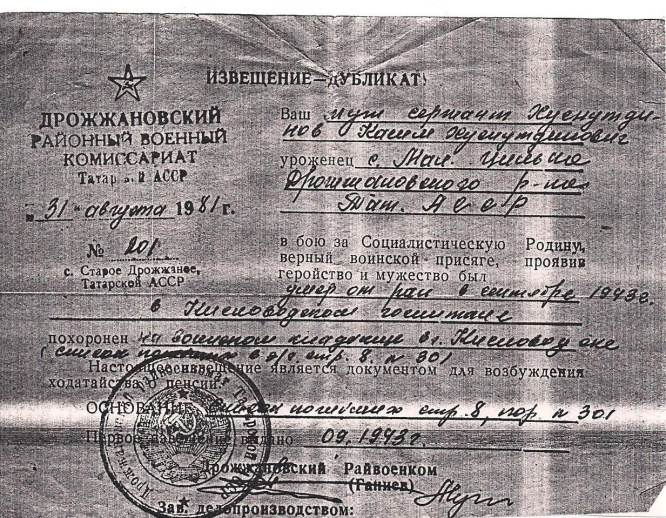 ИЗВЕЩЕНИЕ—ДУБЛИКАТ
ДРОЖЖАНОВСКИЙ
РАЙОННЫЙ ВОЕННЫЙ
КОМИССАРИАТ
Татар й АССР
„31“ августа 1981 г.
№ 201
с. Старое Дрожжаное,
Татарской АССР
Ваш муж сержант Хуснутди-
нов Касим Хуснутдинович
уроженец с. Мал. Цильна
Дрожжановского р-на
Тат. АССР
в бою за Социалистическую Родину,
верный воинской присяге, проявив
геройство и мужество был
умер от ран в сентябре 1943г.
в Кисловодском госпитале
похоронен на военном кладбище в г. Кисловодске
(список в стр. 8. п 301
Настоящее извещение является документом для возбуждения
ходатайства пенсии.
ОСНОВАНИЕ: Список погибших стр. 8, пор. п 301
Первое извещение выдано 09. 1943г.
Дрожжановский Райвоенком
(Ганиев)
Зав. делопроизводством: